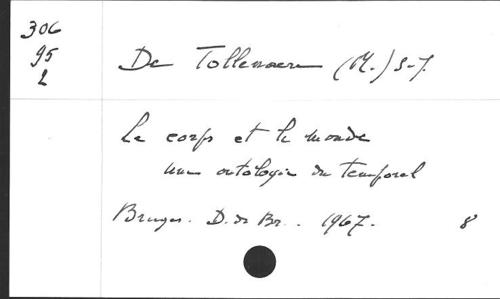 306
95
2
De Tollenaere (M.) S-J.
Le corps et le monde
une ontologie du temporel
Bruges. D. de Br.. 1967. 8